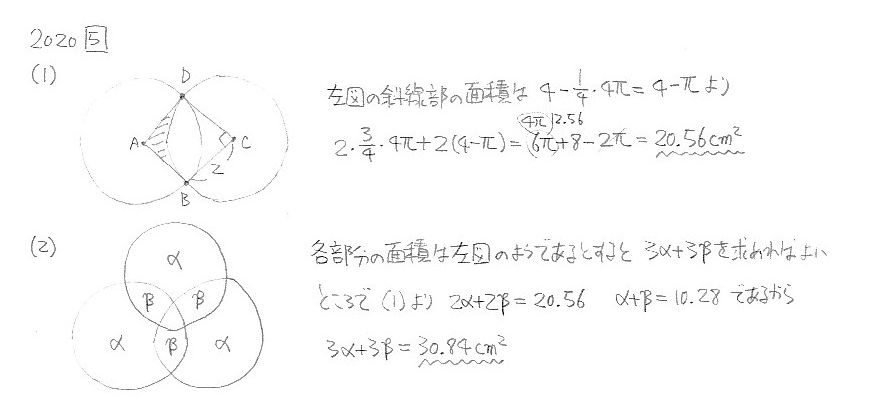 2020 5
(1)
D
A
C
2
B
左図の斜線部の面積は 4-1/4・4π=4-πより
4π 12.56
2・3/4・4π+2(4-π)=6π+8-2π=20.56cm²
(2)
α
β β
α β α
各部分の面積は左図のようであるとすると 3α+3βを求めればよい
ところで (1)より 2α+2β=20.56 α+β=10.28 であるから
3α+3β=30.84cm²